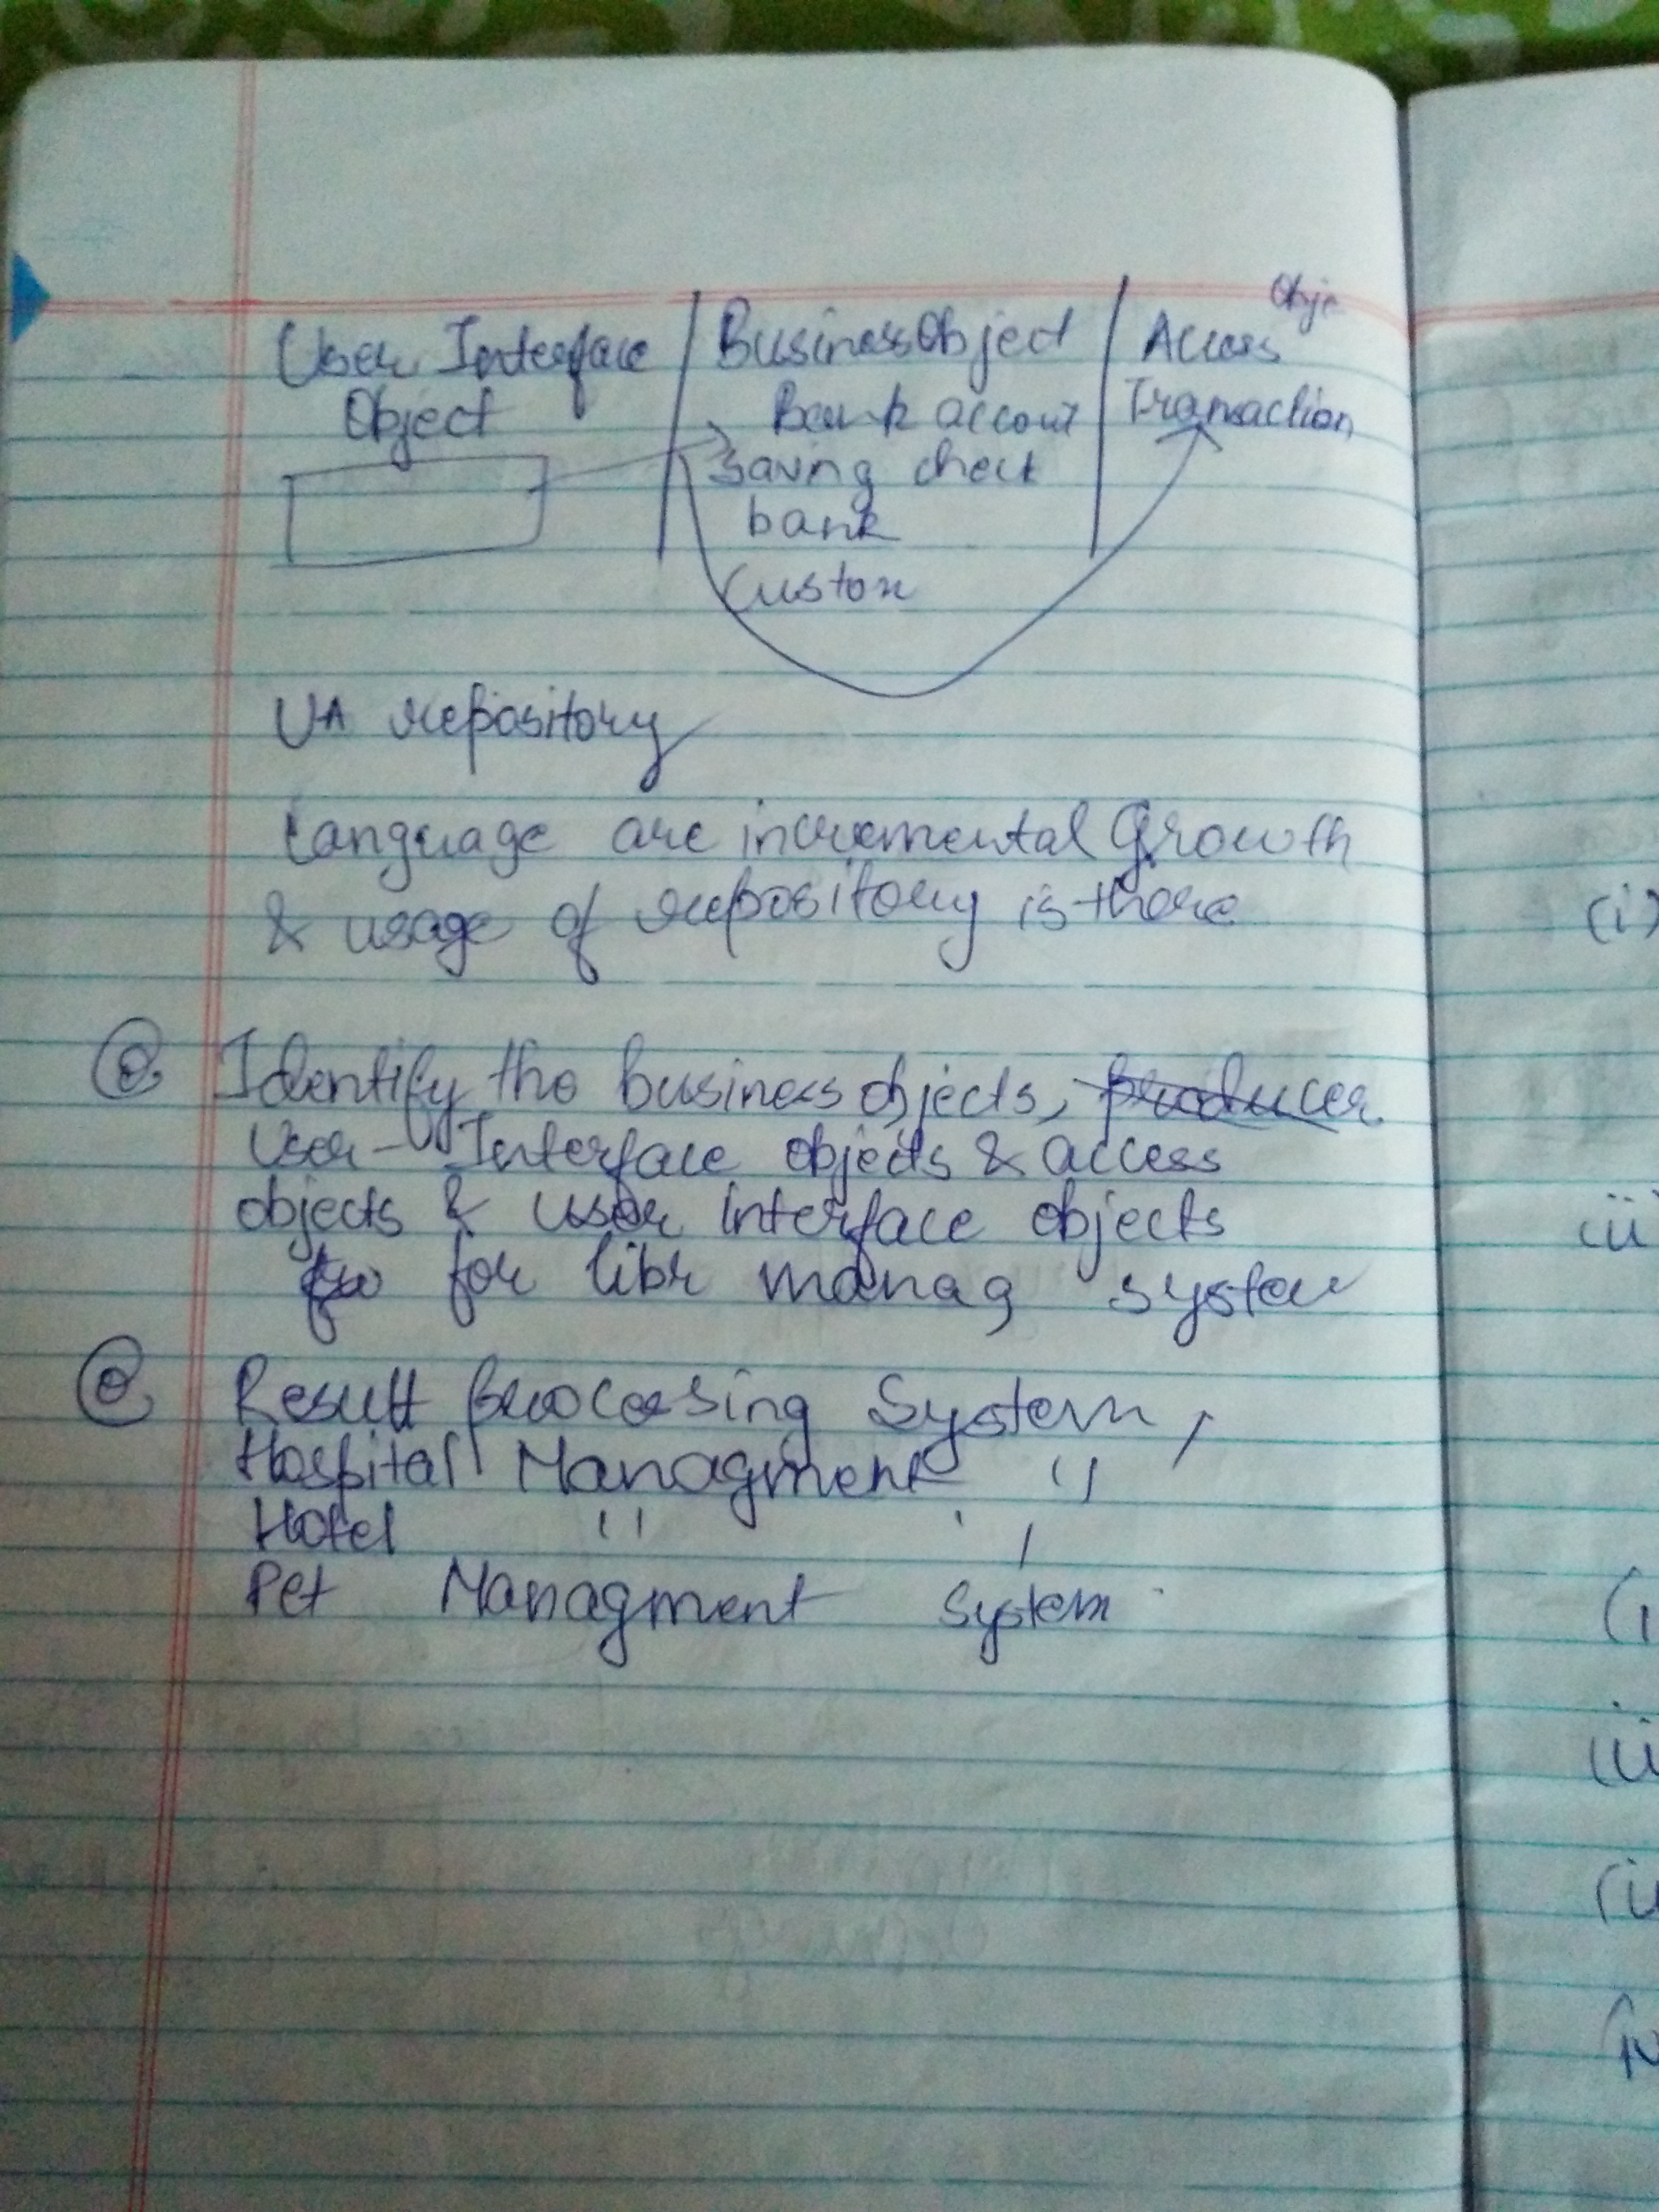 Obje
User Interface | Business Object | Access
Object Bank accout Transaction
Saving check
bank
Custom
UA repository
Language are incremental Growth
& usage of repository is there
Q Identify the business objects, producer
User-Interface objects & access
objects & user interface objects
for libr manag system
Q Result Processing System,
Hospital Managment "
Hotel " ' ,
Pet Managment System
(i)
(ii)
(i
(ii
(ii
(iv